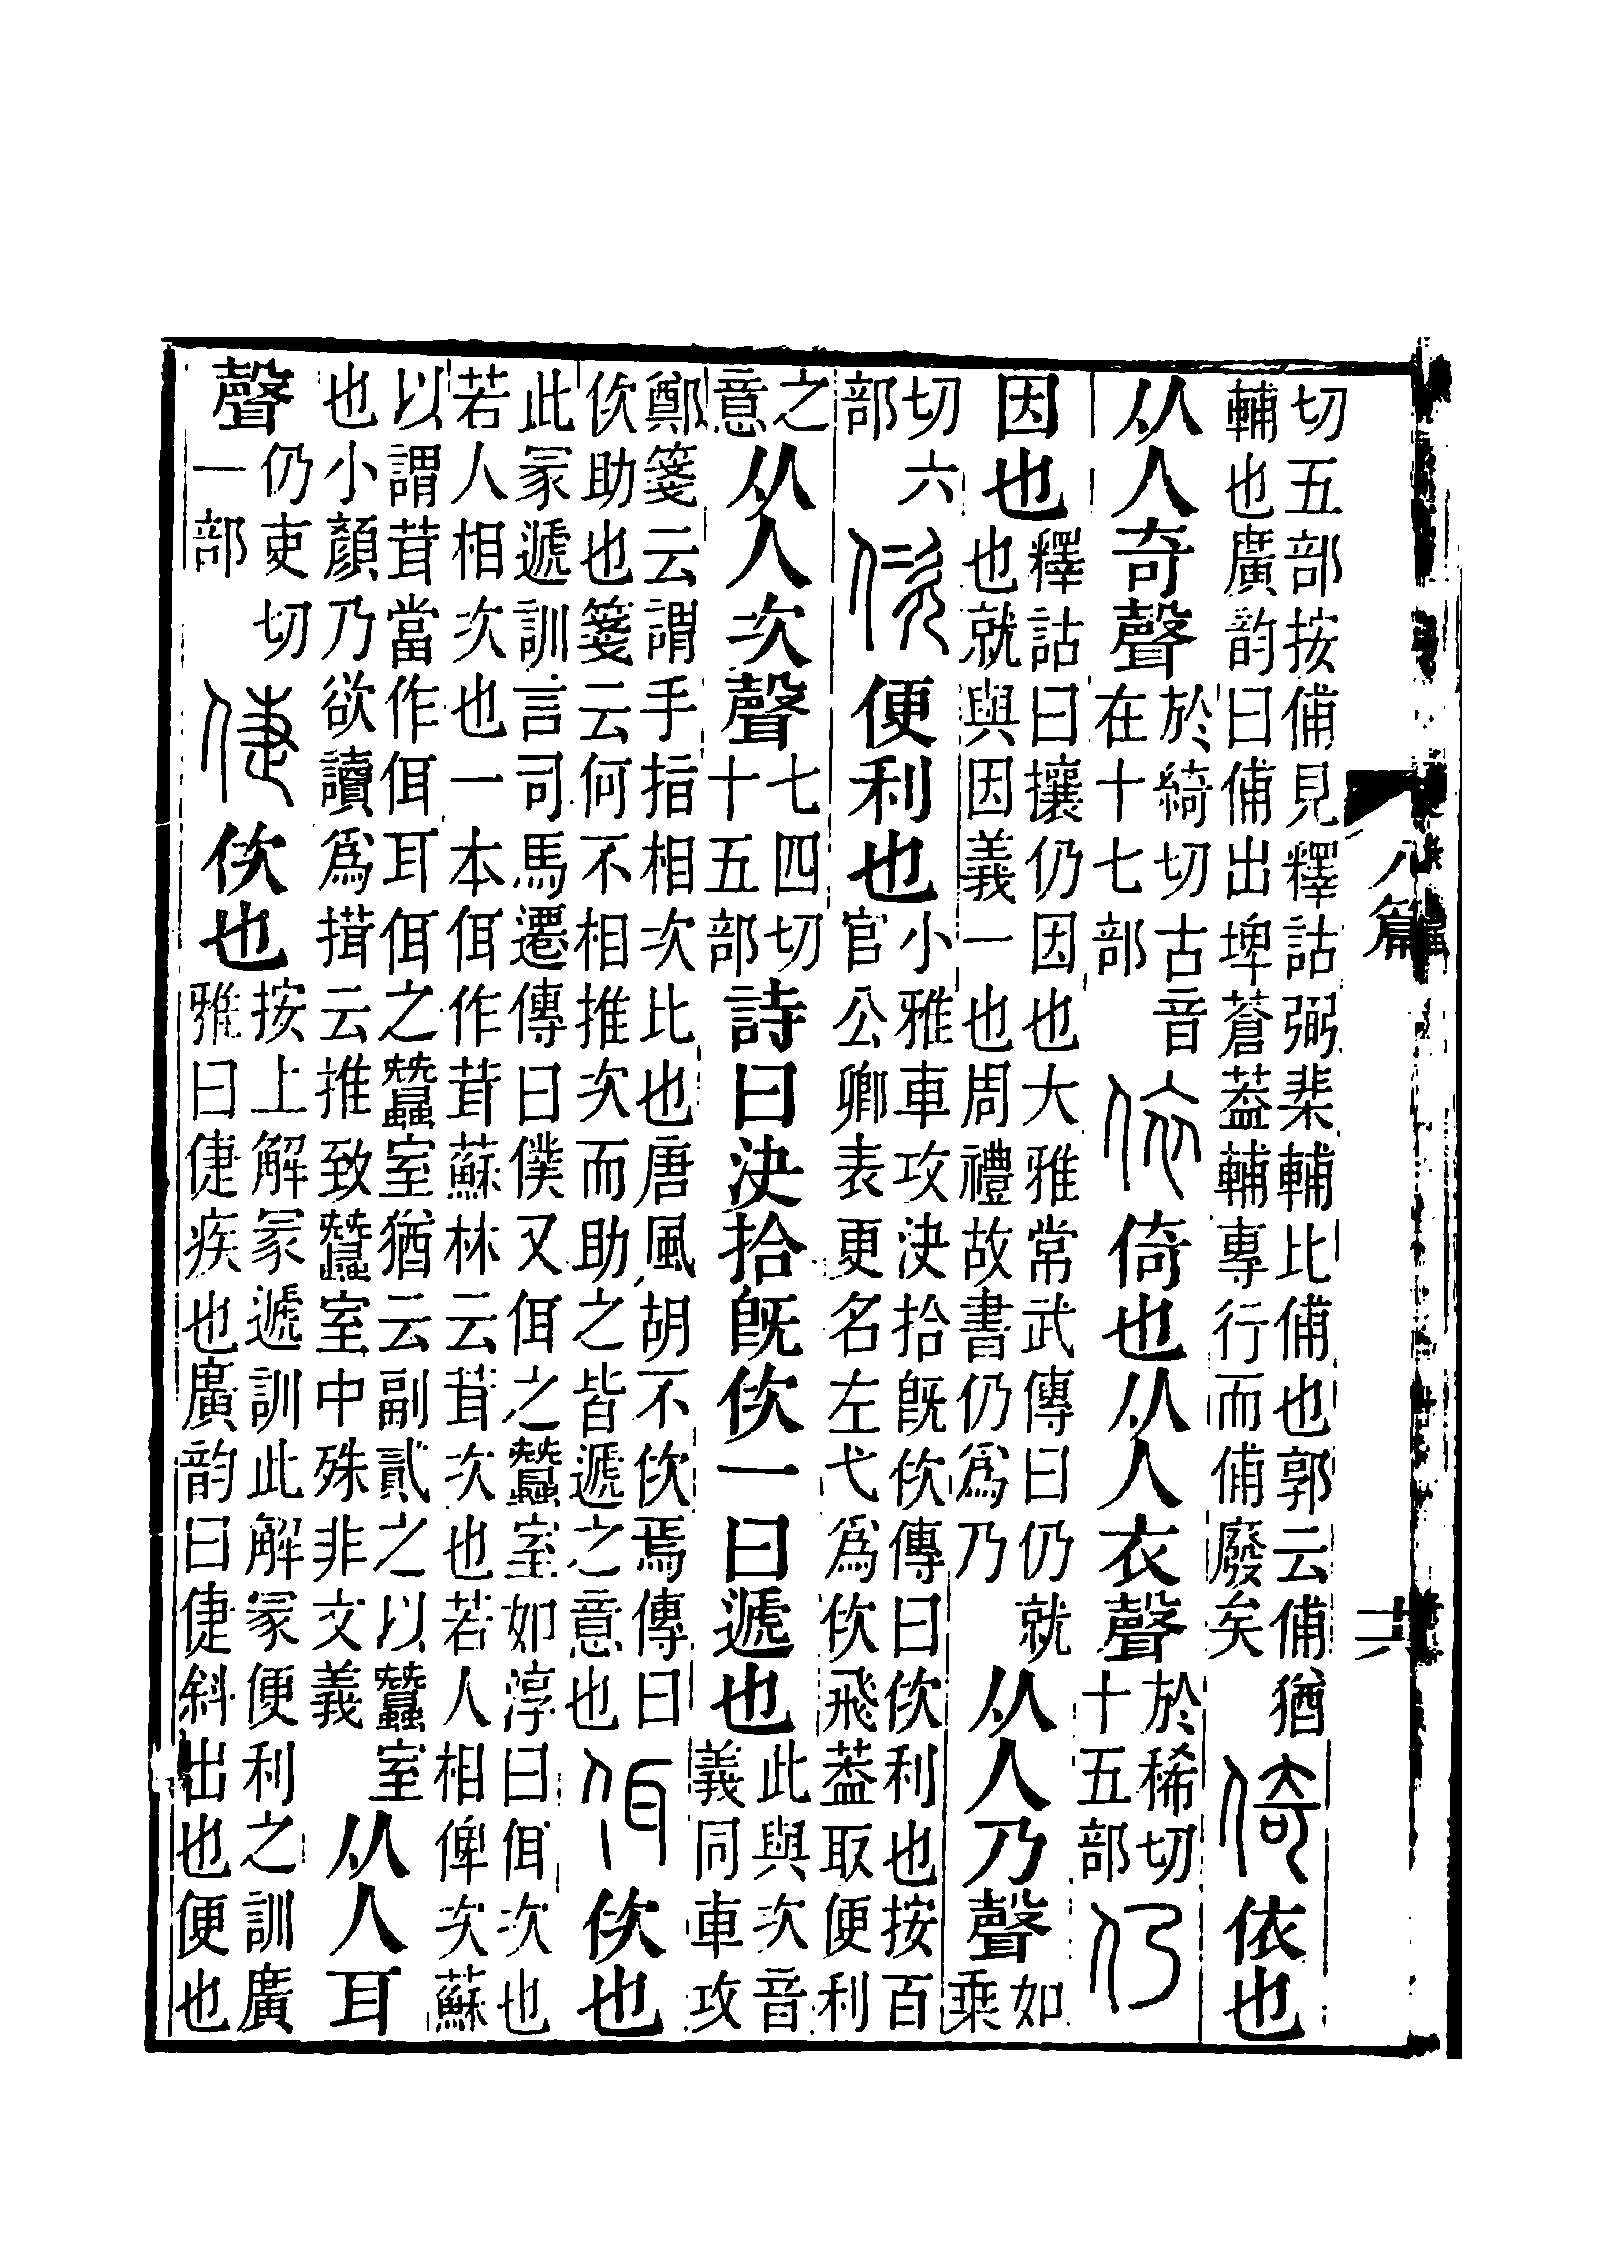 切五部按俌見釋詁弼棐輔比俌也郭云俌猶輔也廣韵曰俌出埤蒼葢輔專行而俌廢矣倚依也
从人奇聲於綺切古音在十七部依倚也从人衣聲於稀切十五部仍
因也釋詁曰攘仍因也大雅常武傳曰仍就也就與因義一也周禮故書仍爲乃从人乃聲如乘
切六部佽便利也小雅車攻決拾旣佽傳曰佽利也按百官公卿表更名左弋爲佽飛葢取便利
之意从人次聲七四切十五部詩曰決拾旣佽一曰遞也此與次音義同車攻
鄭箋云謂手指相次比也唐風胡不佽焉傳曰佽助也箋云何不相推次而助之皆遞之意也佴佽也
此冡遞訓言司馬遷傳曰僕又佴之蠶室如淳曰佴次也若人相次也一本佴作茸蘇林云茸次也若人相俾次蘇
以謂茸當作佴耳佴之蠶室猶云副貳之以蠶室也小顏乃欲讀爲揖云推致蠶室中殊非文義从人耳
聲仍吏切一部倢佽也按上解冡遞訓此解冡便利之訓廣雅曰倢疾也廣韵曰倢斜出也便也
八篇